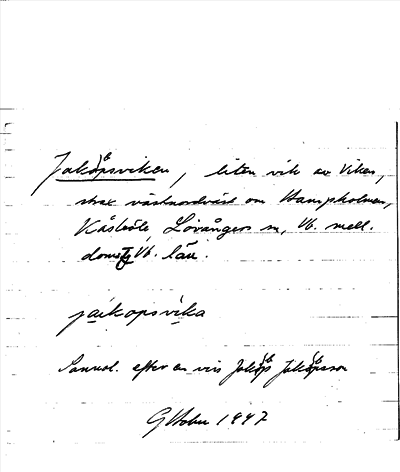 Jakobsviken, liten vik av Viken,
strax västnordväst om Hampholmen,
Kåsböle Lövångers sn, Vb. mell.
doms. Vb. län.
jakopsvika
Sannol. efter en viss Jakob Jakobsson
G Holm 1947